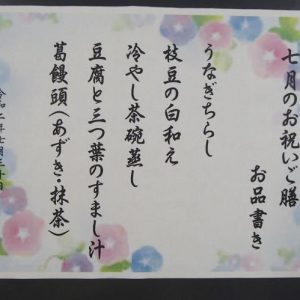 七月のお祝いご膳
お品書き
うなぎちらし
枝豆の白和え
冷やし茶碗蒸し
豆腐と三つ葉のすまし汁
葛饅頭(あずき・抹茶)
令和二年七月三十日